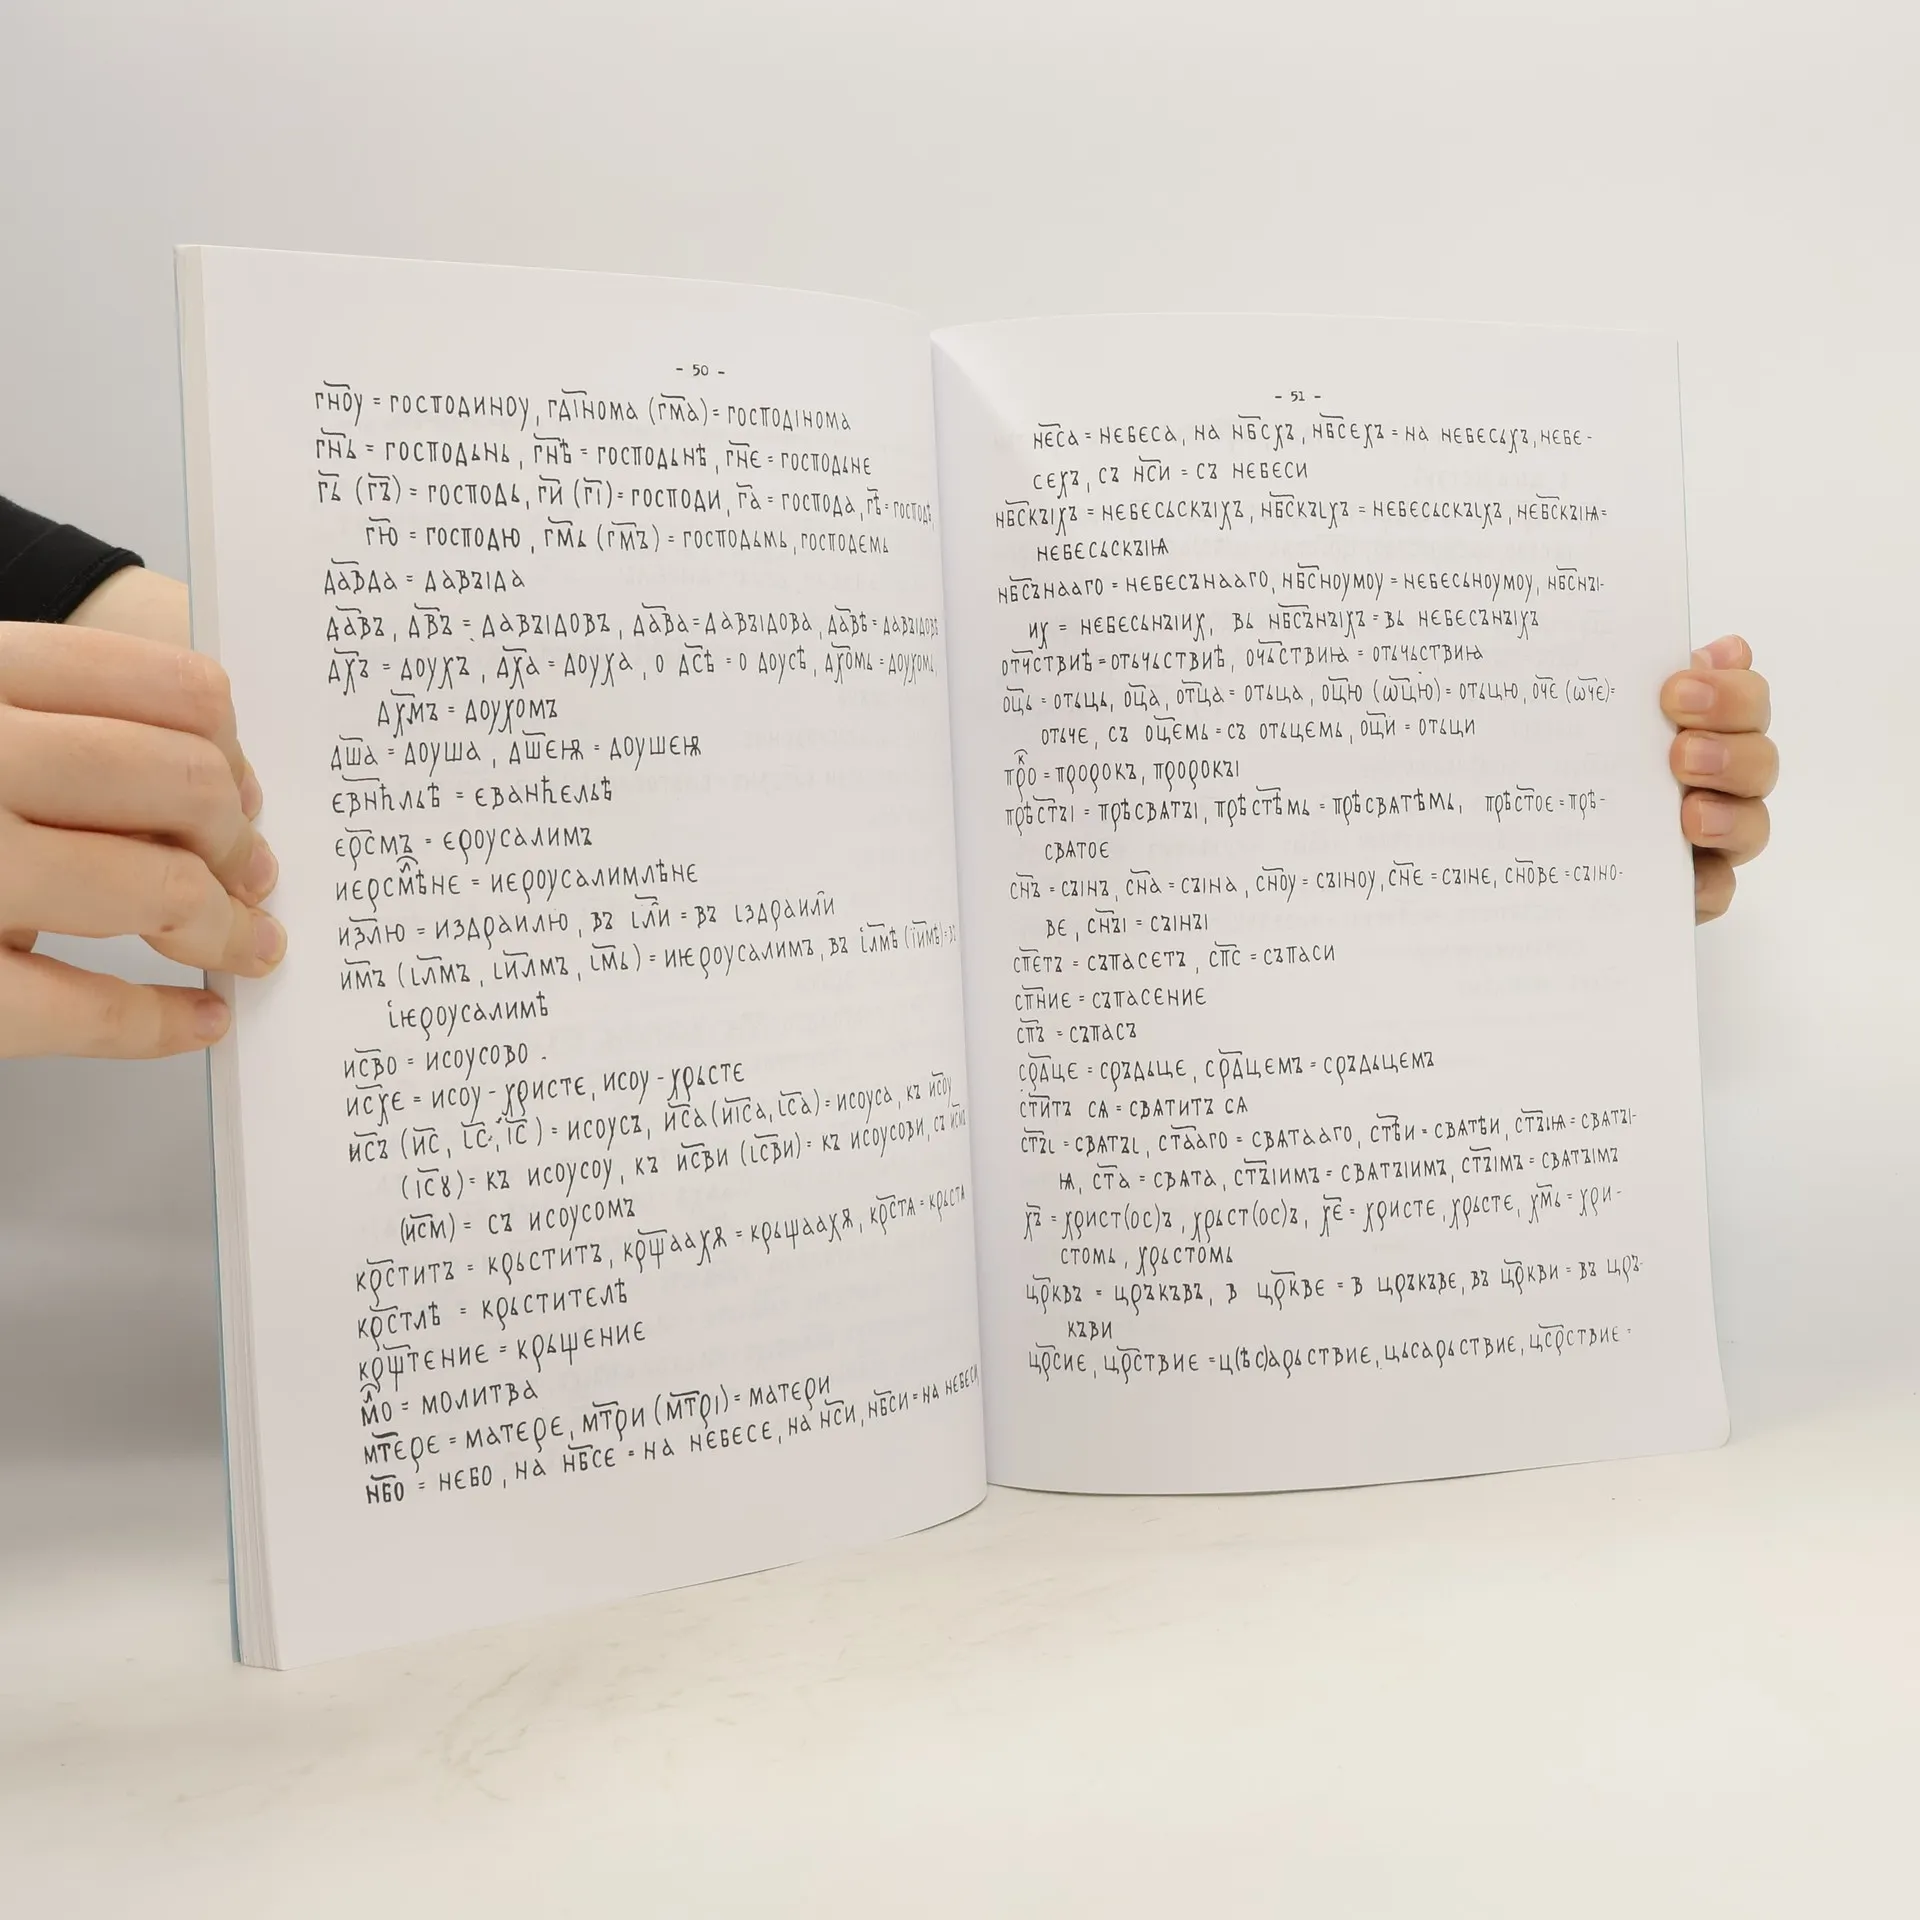 - 50 -
гн҃оу = господиноу, гді҃нома (гм҃а) = господінома
гн҃ь = господьнь, гн҃ѣ = господьнѣ, гн҃є = господьнє
г҃ь (г҃ъ) = господь, г҃и (г҃і) = господи, г҃а = господа, г҃ѣ = господѣ,
г҃ю = господю, гм҃ь (гм҃ъ) = господьмь, господємь
да҃вда = давꙑда
да҃въ, дв҃ъ = давꙑдовъ, да҃ва = давꙑдова, да҃вѣ = давꙑдовѣ
дх҃ъ = доухъ, дх҃а = доуха, о дс҃ѣ = о доусѣ, дх҃омь = доухомь,
дх҃мъ = доухомъ
дш҃а = доуша, дш҃єѭ = доушєѭ
євн҃ћльѣ = єванћєльѣ
єрс҃мъ = єроусалимъ
иєрсм҃ⷧѣнє = иєроусалимлѣнє
из҃лю = издраилю, въ ıл҃и = въ ıздраили
им҃ъ (ıл҃мъ, ıи҃лмъ, ıм҃ь) = иѥроусалимъ, въ іл҃мѣ (їи҃мѣ) = въ
іѥроусалимѣ
ис҃во = исоусово .
ис҃хє = исоу-христє, исоу-хрьстє
ис҃ъ (ис҃, ıс҃, іс҃) = исоусъ, ис҃а (иіс҃а, ıс҃а) = исоуса, къ ис҃оу
(іс҃ꙋ) = къ исоусоу, къ ис҃ви (ıс҃ви) = къ исоусови, съ
(ис҃м) = съ исоусомъ
крс҃титъ = крьститъ, крщ҃аахѫ = крьщаахѫ, крс҃та = крьста
крс҃тлѣ = крьститєлѣ
крш҃тєниє = крьщєниє
мⷧ҃о = молитва
мт҃єрє = матєрє, мт҃ри (мт҃рі) = матєри
нб҃о = нєбо, на нб҃сє = на нєбєсє, на нс҃и, нб҃си = на нєбєси
- 51 -
нє҃са = нєбєса, на нб҃схъ, нб҃сєхъ = на нєбєсьхъ, нєбє-
сєхъ, съ нс҃и = съ нєбєси
нб҃скꙑхъ = нєбєсьскꙑхъ, нб҃скъıхъ = нєбєсьскъıхъ, нєб҃скꙑѩ =
нєбєсьскꙑѩ
нб҃сънааго = нєбєсънааго, нб҃сноумоу = нєбєсьноумоу, нб҃снꙑ-
их = нєбєсьнꙑих, вь нб҃сънꙑхъ = вь нєбєсънꙑхъ
отч҃ствиѣ = отьчьствиѣ, оч҃ьствиѩ = отьчьствиѩ
оц҃ь = отьць, оц҃а, отц҃а = отьца, оц҃ю (ѡц҃ю) = отьцю, оч҃є (ѡч҃є) =
отьчє, съ оц҃ємь = съ отьцємь, оц҃и = отьци
пр҃оⷦ = пророкъ, пророкꙑ
прѣс҃тꙑ = прѣсватꙑ, прѣст҃ѣмь = прѣсватѣмь, прѣс҃тоє = прѣ-
сватоє
сн҃ъ = сꙑнъ, сн҃а = сꙑна, сн҃оу = сꙑноу, сн҃є = сꙑнє, сн҃овє = сꙑно-
вє, сн҃ꙑ = сꙑнꙑ
сп҃єтъ = съпасєтъ, сп҃с = съпаси
сп҃ниє = съпасєниє
сп҃ъ = съпасъ
срд҃цє = сръдьцє, срд҃цємъ = сръдьцємъ
ст҃итъ сѧ = сватитъ сѧ
ст҃ъı = сватъı, ст҃ааго = сватааго, ст҃ѣи = сватѣи, ст҃ꙑѩ = сватꙑ-
ѩ, ст҃а = свата, ст҃ꙑимъ = сватꙑимъ, ст҃ꙑмъ = сватꙑмъ
х҃ъ = христ(ос)ъ, хрьст(ос)ъ, х҃є = христє, хрьстє, хм҃ь = хри-
стомь, хрьстомь
цр҃квъ = цръкъвъ, в цр҃квє = в цръкъвє, въ цр҃кви = въ цръ-
къви
цр҃сиє, цр҃ствиє = ц(ѣс)арьствиє, цьсарьствиє, цс҃рствиє =